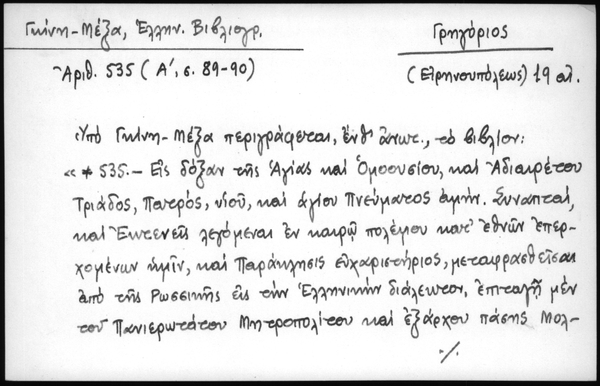 Γκίνη-Μέξα, Ἑλλην. Βιβλιογρ.
Γρηγόριος
Ἀριθ. 535 (Α΄, σ. 89-90)
(Εἰρηνουπόλεως) 19 αἰ.
Ὑπὸ Γκίνη-Μέξα περιγράφεται, ἔνθ' ἀνωτ., τὸ βιβλίον:
« * 535.- Εἰς δόξαν τῆς Ἁγίας καὶ Ὁμοουσίου, καὶ Ἀδιαιρέτου
Τριάδος, Πατρός, υἱοῦ, καὶ ἁγίου Πνεύματος ἀμήν. Συναπταί,
καὶ Ἐκτενεῖς λεγόμεναι ἐν καιρῷ πολέμου κατ' ἐθνῶν ἐπερ-
χομένων ἡμῖν, καὶ Παράκλησις εὐχαριστήριος, μεταφρασθεῖσαι
ἀπὸ τῆς Ρωσσικῆς εἰς τὴν Ἑλληνικὴν διάλεκτον, ἐπιταγῇ μὲν
τοῦ Πανιερωτάτου Μητροπολίτου καὶ ἐξάρχου πάσης Μολ-
./.